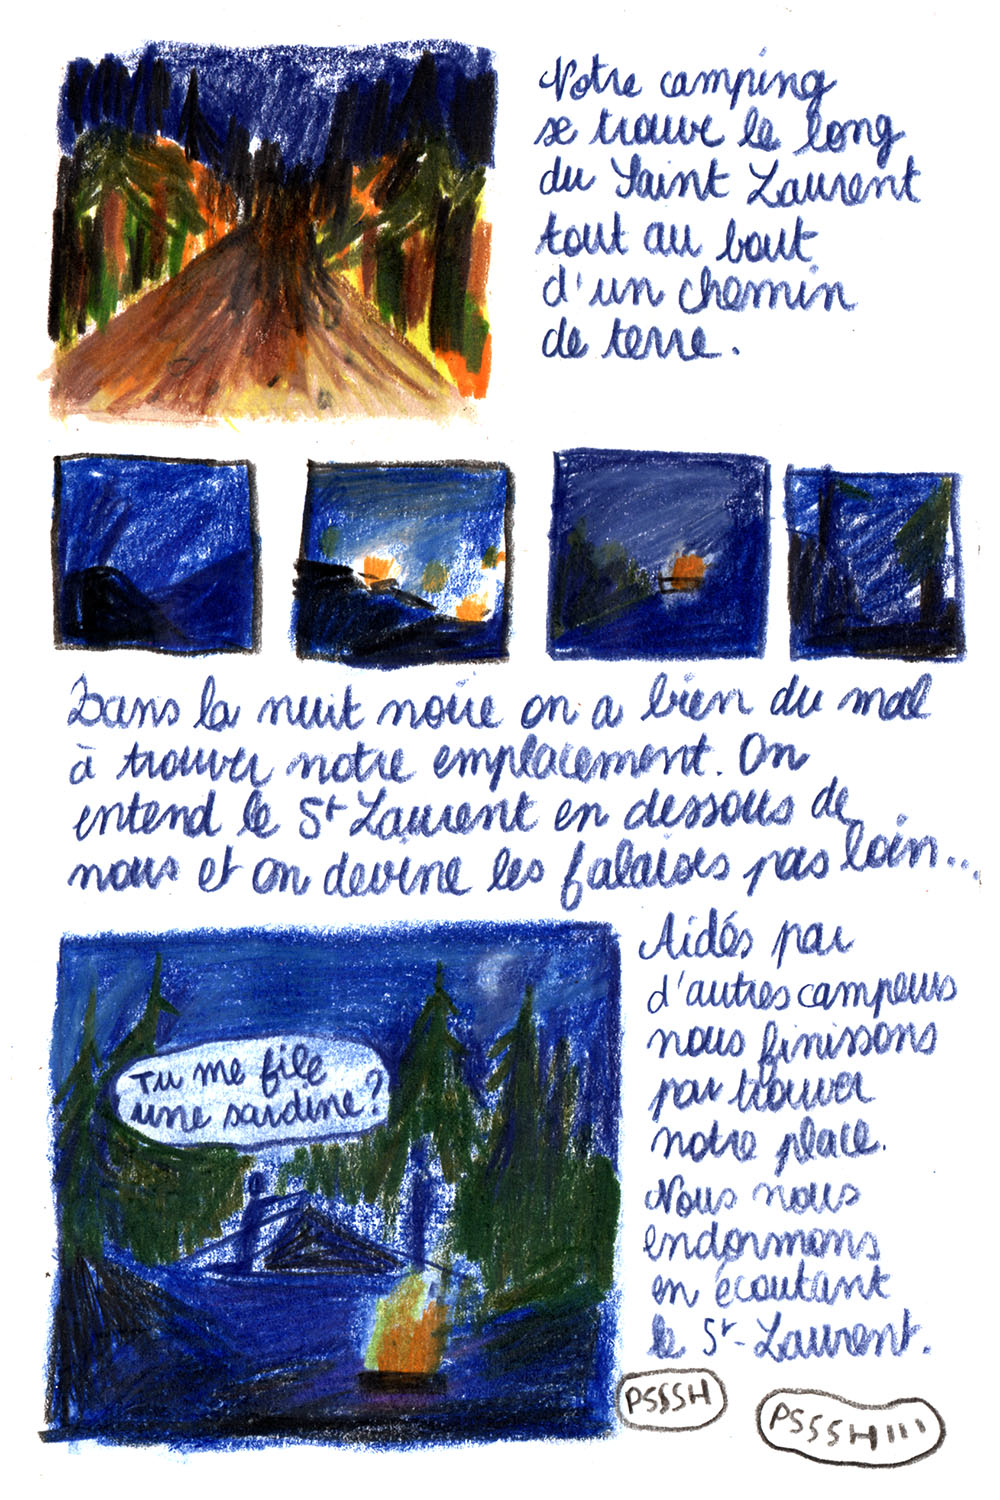 Notre camping
se trouve le long
du Saint Laurent
tout au bout
d'un chemin
de terre.
Dans la nuit noire on a bien du mal
à trouver notre emplacement. On
entend le St Laurent en dessous de
nous et on devine les falaises pas loin...
Tu me file
une sardine?
Aidés par
d'autres campeurs
nous finissons
par trouver
notre place.
Nous nous
endormons
en écoutant
le St-Laurent.
PSSSH
PSSSHIII